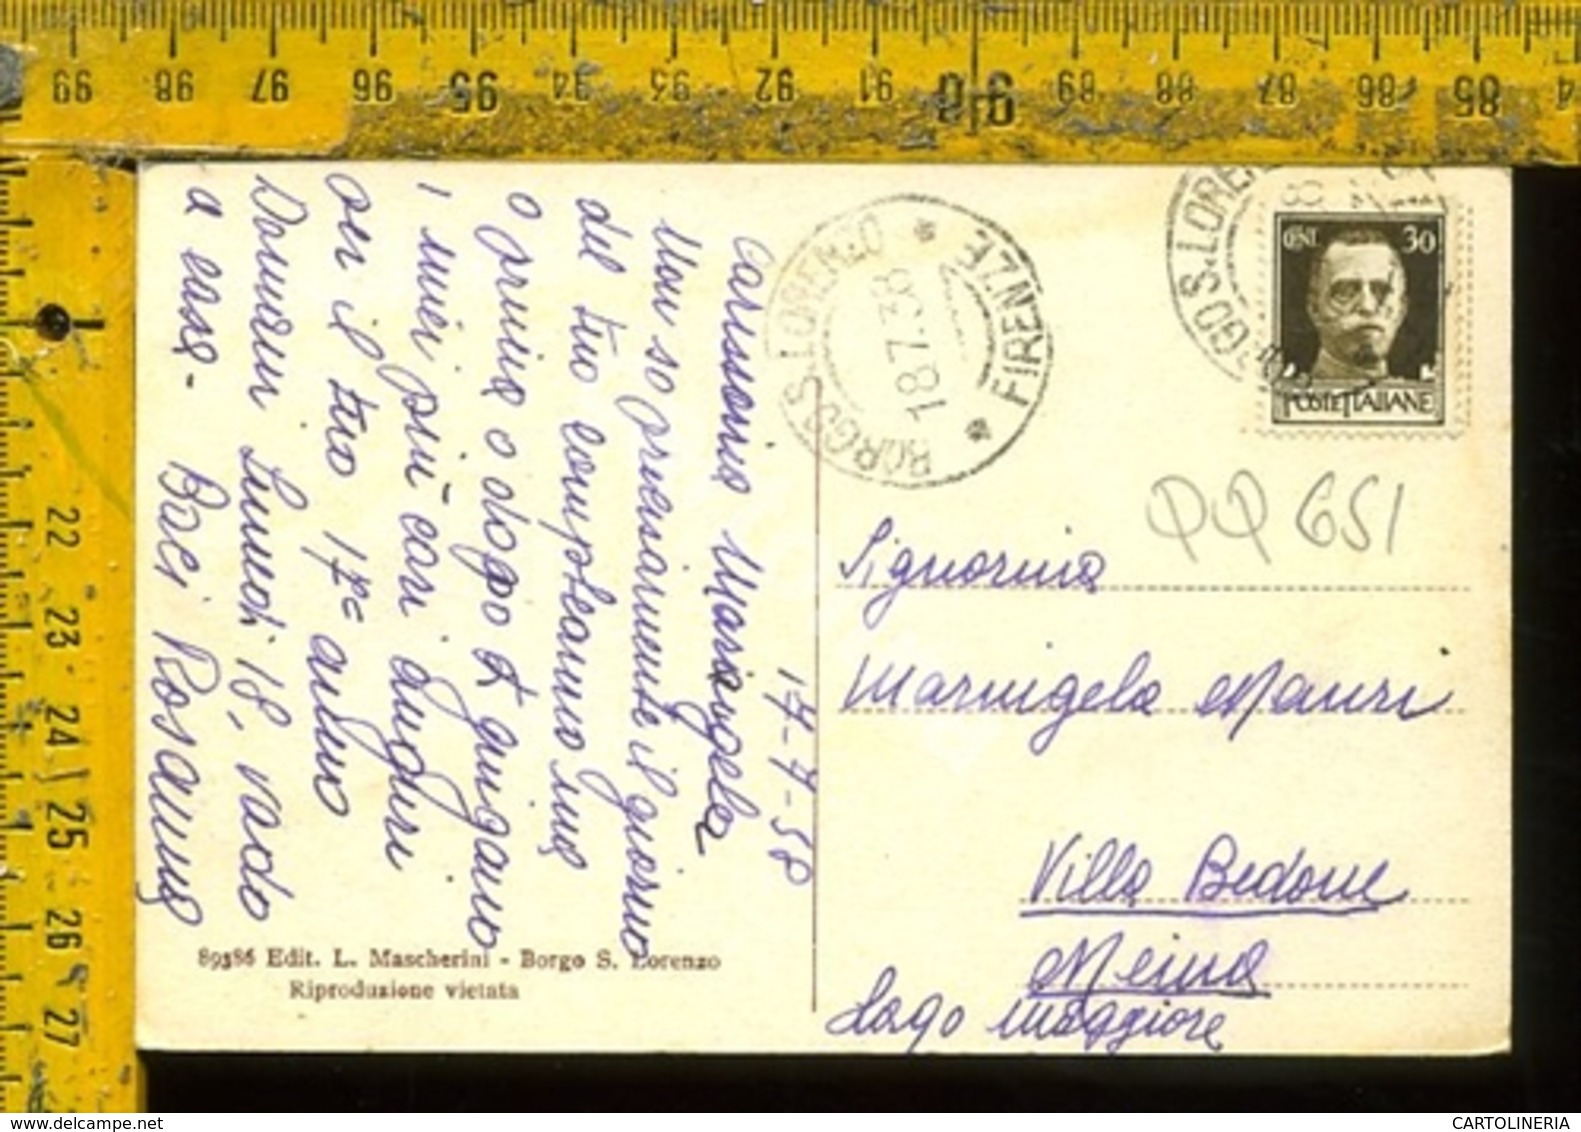 99 98 97 96 95 94 93 92 91 90 89 88 87 86 85
22 23 24 25 26 27
17-7-38
Carissima Mariangela
Non so precisamente il giorno
del tuo compleanno ma
o prima o dopo t'inviano
i miei più cari auguri
per il tuo 17º anno
Domani Lunedì 18, vado
a casa - Baci Rosanna
89386 Edit. L. Mascherini - Borgo S. Lorenzo
Riproduzione vietata
BORGO S. LORENZO * FIRENZE *
18.7.38
BORGO S. LOREN
CENT. 30
POSTE ITALIANE
QQ 651
Signorina
Mariangela Mauri
Villa Bedone
Meina
Lago Maggiore
CARTOLINERIA